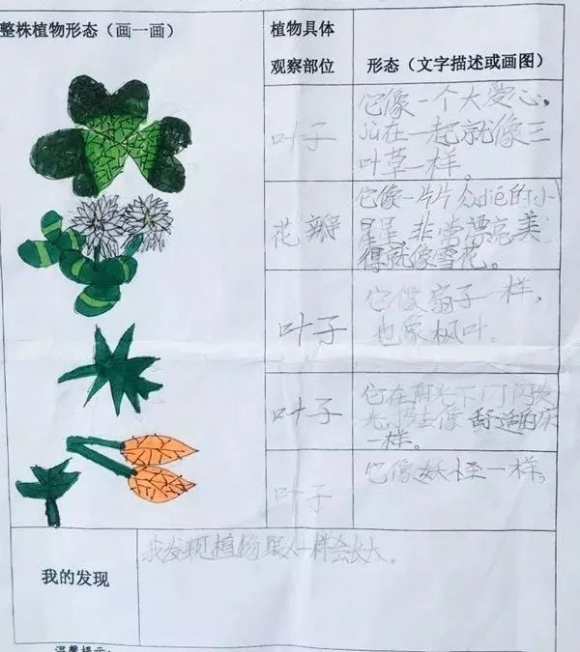 整株植物形态（画一画）
植物具体
观察部位
形态（文字描述或画图）
叶子
它像一个大爱心，
在一起就像三
叶草一样。
花瓣
它像一片片 dié的小
星星 非常漂亮 美
得就像雪花。
叶子
它像扇子一样，
也像枫叶。
叶子
它在阳光下闪闪发
光 像 舒适的床
一样。
叶子
它像妖怪一样。
我的发现
我发现植物跟人一样会长大。
温馨提示：